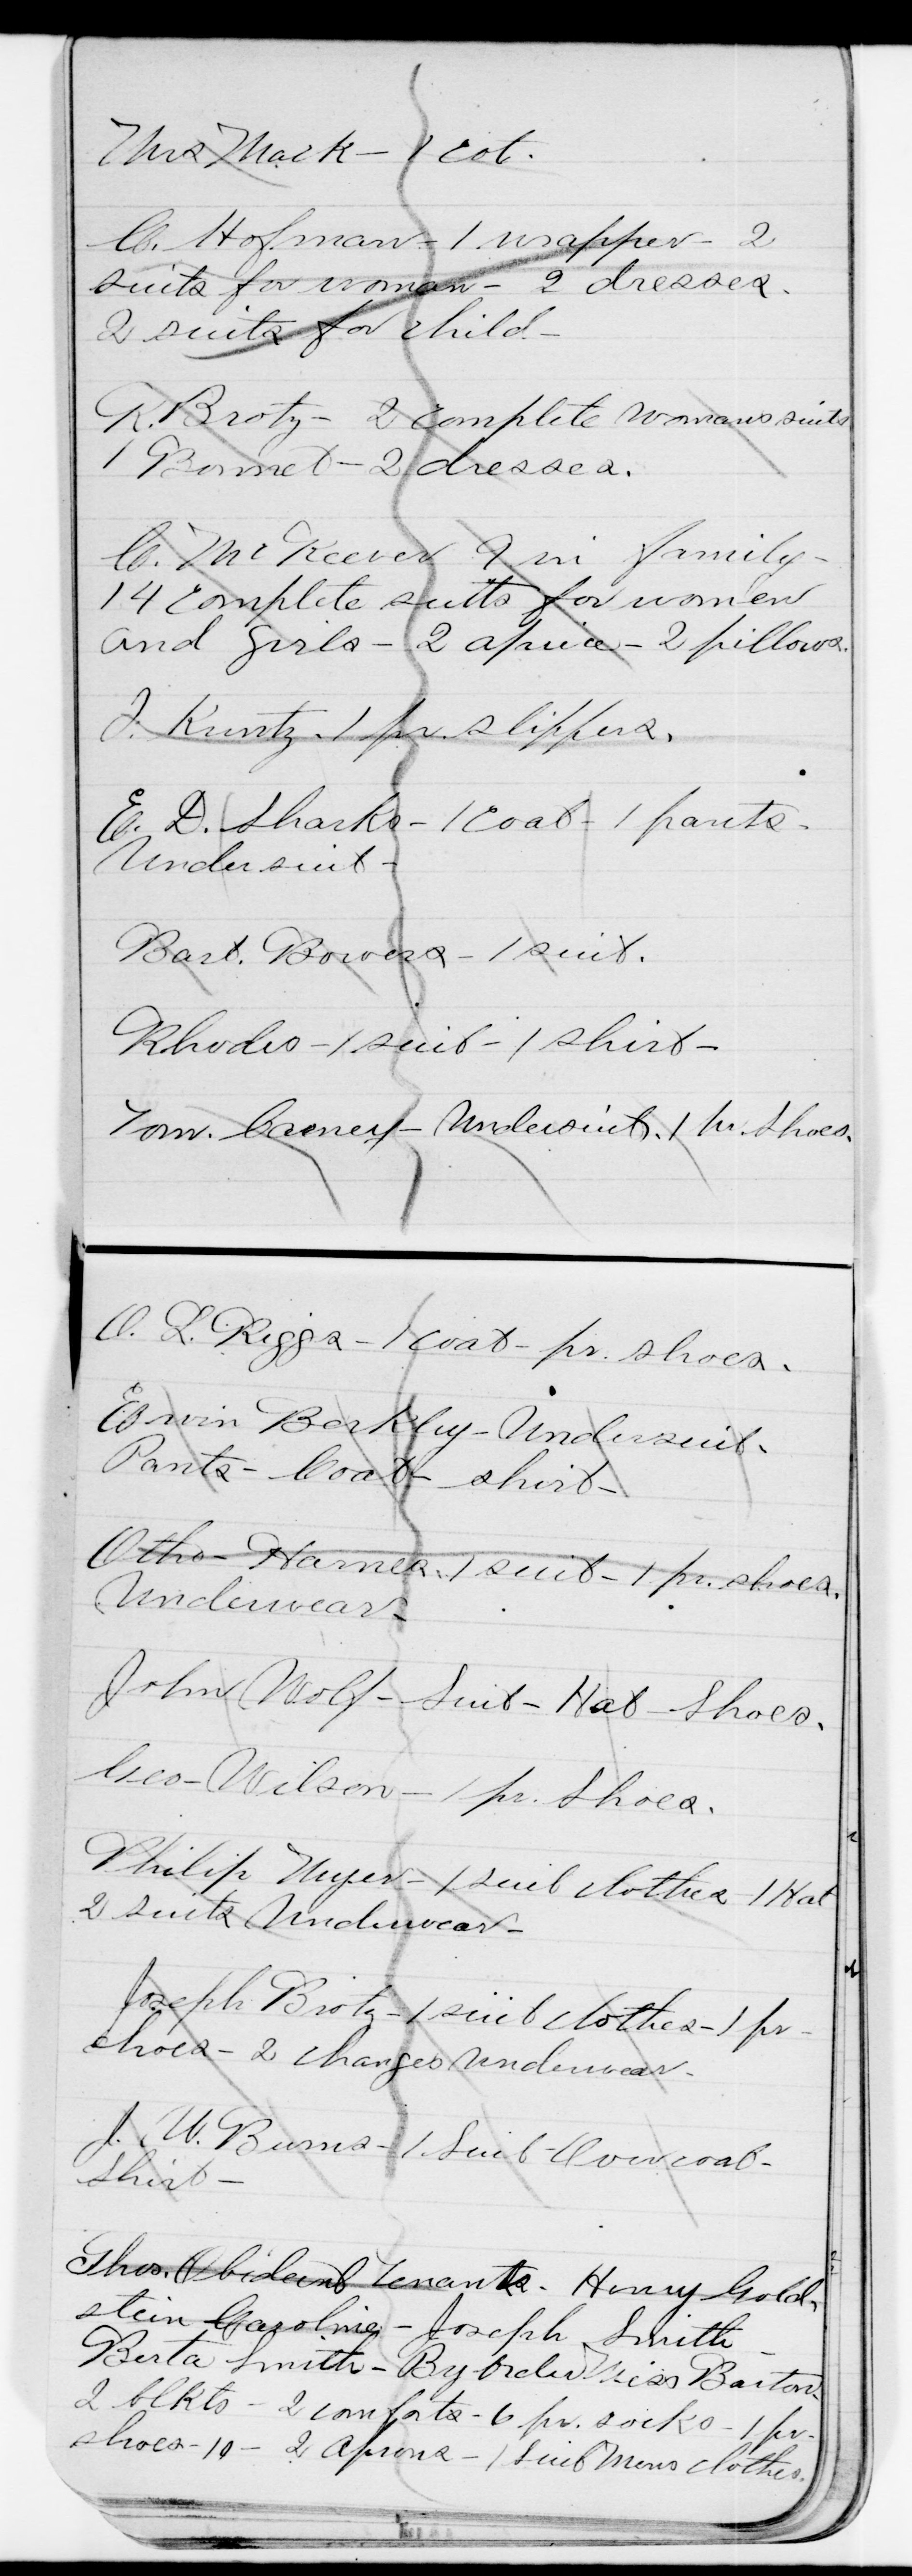 Mrs Mack - 1 cot.
C. Hofman - 1 wrapper - 2
suits for woman - 2 dresses.
2 suits for child -
K. Broty - 2 complete womans suits
1 Bonnet - 2 dresses.
C. McKeever 7 in family -
14 complete suits for women
and girls - 2 apiece - 2 pillows.
J. Kuntz. 1 pr. slippers.
E. D. Sharks - 1 coat - 1 pants -
Undersuit -
Bart. Bowers - 1 suit.
Rhodes - 1 suit - 1 shirt -
Tom. Carney - Undersuit. 1 pr. shoes.
O. L. Riggs - 1 coat - pr. shoes.
Erwin Berkley - Undersuit.
Pants - Coat - shirt -
Otho - Harnes. 1 suit - 1 pr. shoes.
Underwear -
John Wolf - Suit - Hat - Shoes.
Geo - Wilson - 1 pr. Shoes.
Philip Unger - 1 suit clothes 1 Hat
2 suits Underwear -
Joseph Broty - 1 suit clothes - 1 pr -
shoes - 2 changes Underwear -
J. W. Burns - 1 Suit - Overcoat -
Shirt -
Thos. Tenants - Henry Gold-
stein Caroline - Joseph Smith
Berta Smith - By order Miss Barton -
2 blkts - 2 comforts - 6 pr. socks - 1 pr -
shoes - 10 - 2 aprons - 1 Suit Mens clothes.